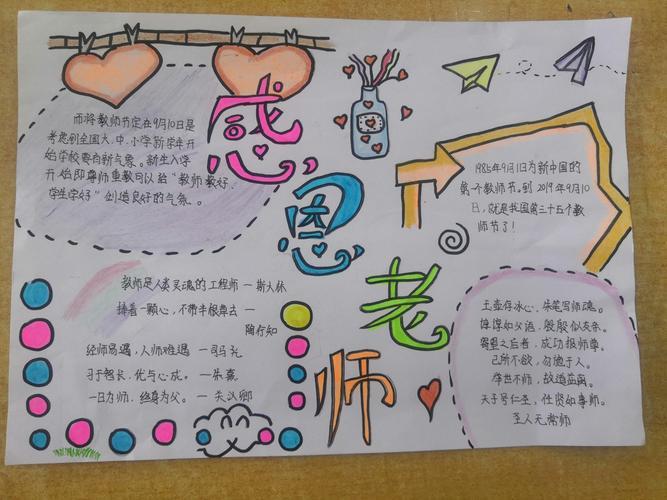 感恩老师
而将教师节定在9月10日是
考虑到全国大、中、小学新学年开
始学校要有新气象。新生入学
开始即尊师重教可以给"教师教好、
学生学好"创造良好的气氛。
1985年9月1日为新中国的
第一个教师节。到2019年9月10
日，就是我国第三十五个教
师节了!
教师是人类灵魂的工程师 — 斯大林
捧着一颗心，不带半根草去 —
陶行知
经师易遇，人师难遇 — 司马光
习于智长，优与心成。 — 朱熹
一日为师，终身为父。 — 关汉卿
玉壶存冰心，朱笔写师魂。
谆谆如父语，殷殷似友亲。
之后者，成功报师尊。
己所不欲，勿施于人。
举世不师，故道益离。
天子号仁圣，任贤如事师。
至人无常师